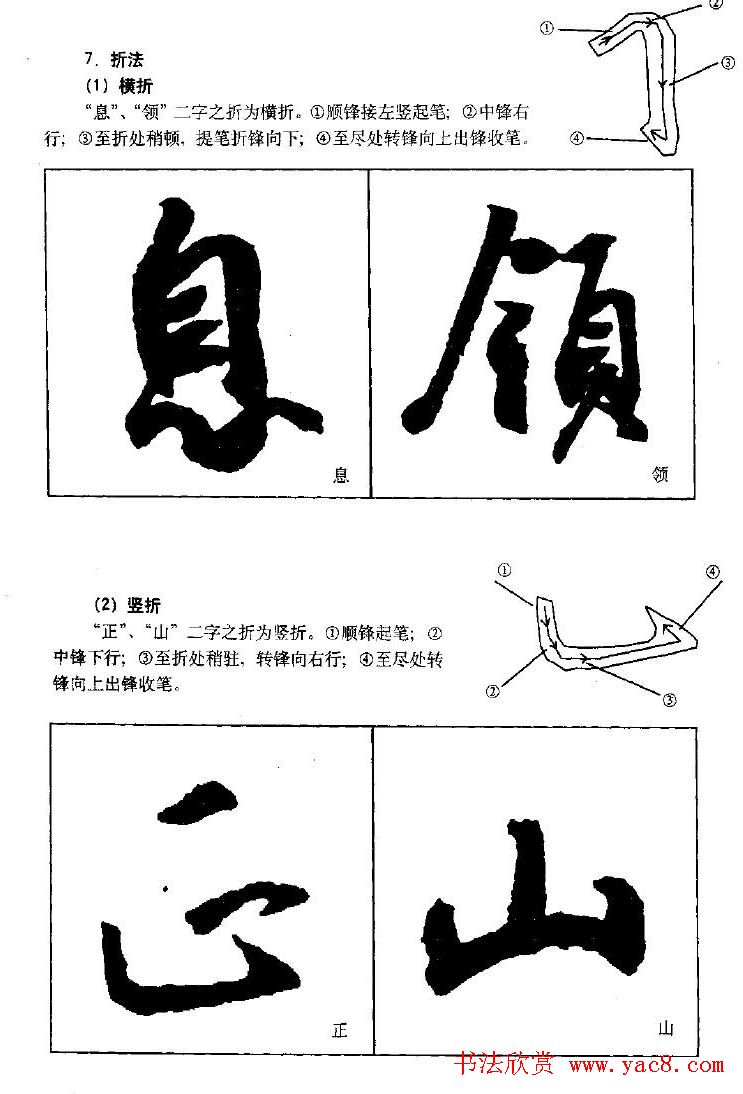 ①
②
7．折法
(1) 横折
③
“息”、“领”二字之折为横折。①顺锋接左竖起笔；②中锋右
行；③至折处稍顿，提笔折锋向下；④至尽处转锋向上出锋收笔。
④
息 领
息 领
①
④
(2) 竖折
“正”、“山”二字之折为竖折。①顺锋起笔；②
中锋下行；③至折处稍驻，转锋向右行；④至尽处转
锋向上出锋收笔。
②
③
正 山
正 山
书法欣赏 www.yac8.com